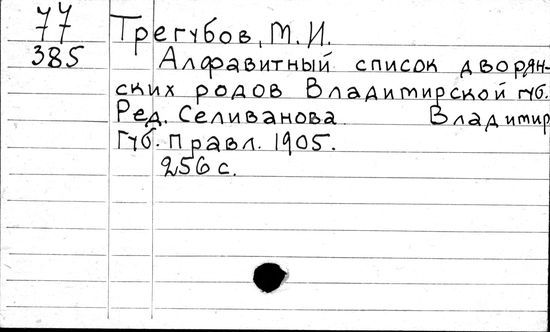 77 Трегубов, М. И.
385 Алфавитный список дворян-
ских родов Владимирской губ.
Ред. Селиванова Владимир
Губ. Правл. 1905.
256 с.